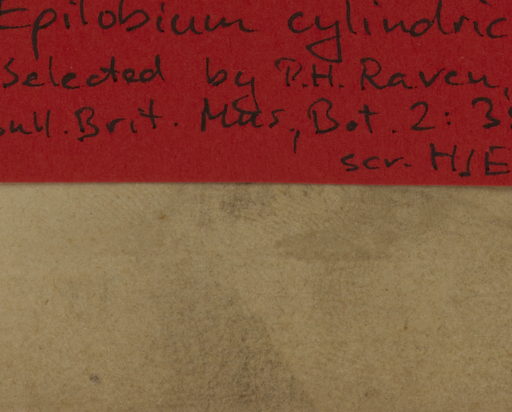 Epilobium cylindric
Selected by P.H. Raven,
Bull. Brit. Mus, Bot. 2: 3
scr. HJE